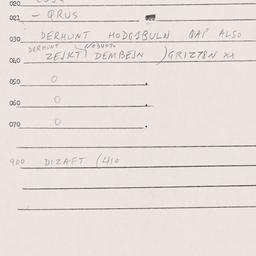 020
023 - QRUS
030 DERHUNT HODGIBULN QAP ALSO
DERHUNT
040 ZEJKT DEMBEJN ) GRIZTEN XX
050 0
060 0
070 0
900 DIZAFT (410